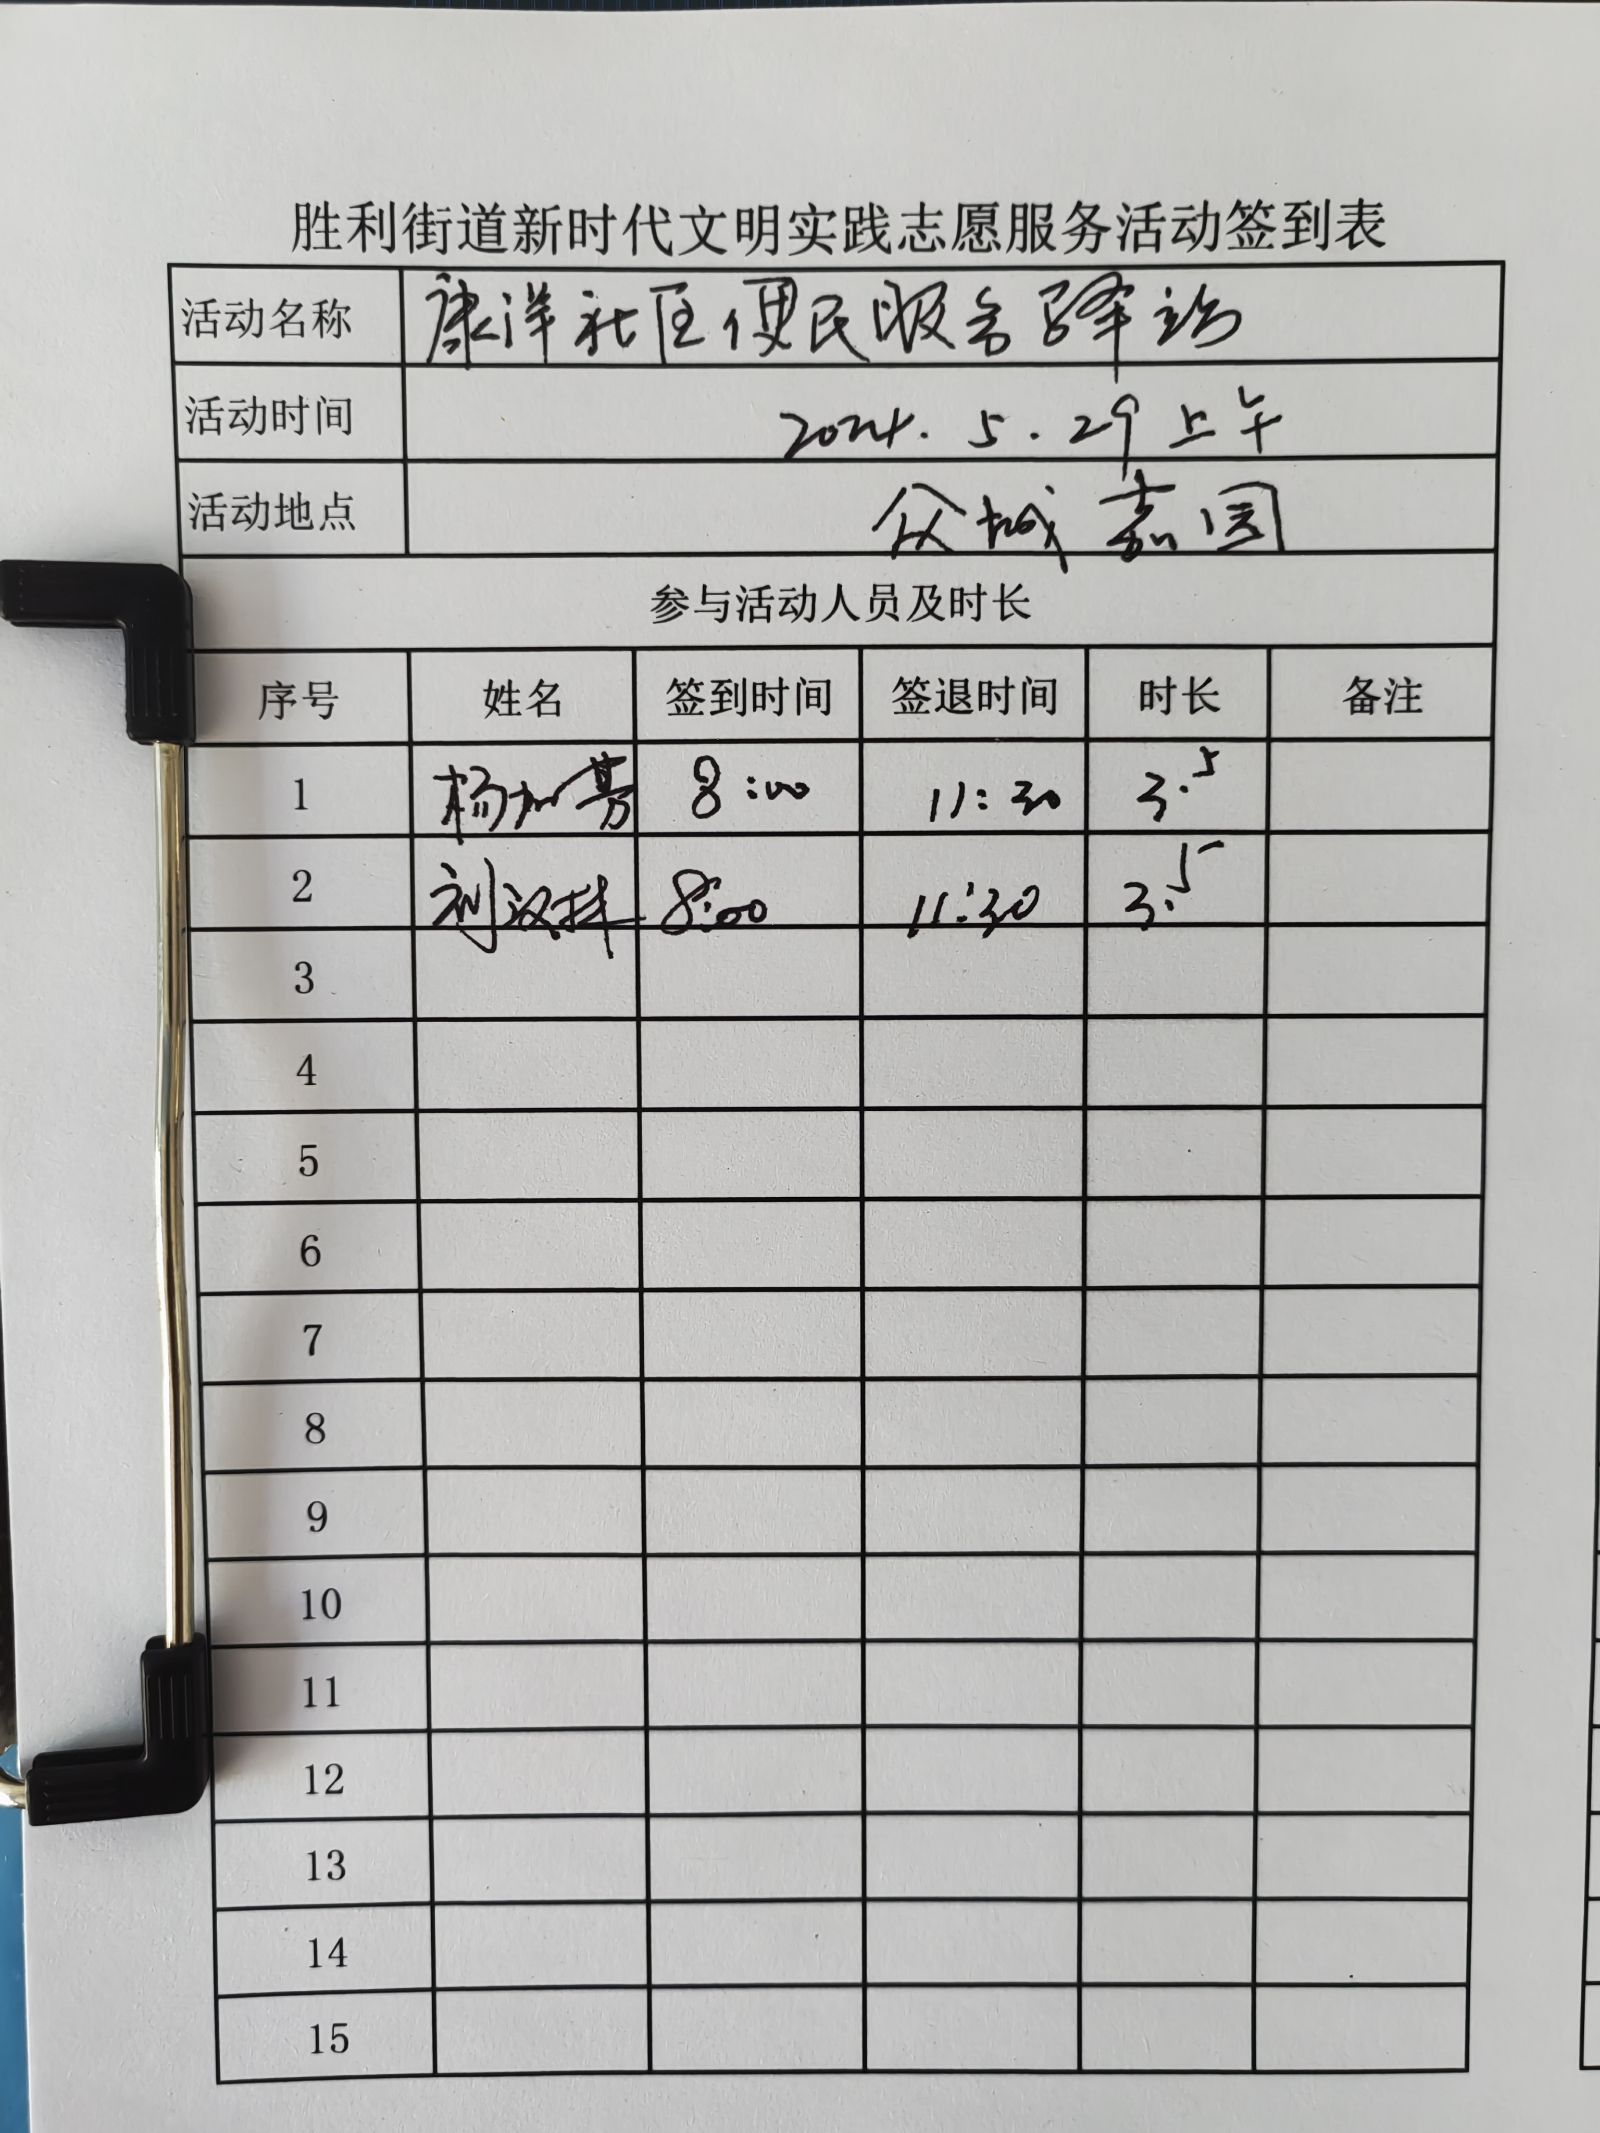 胜利街道新时代文明实践志愿服务活动签到表
活动名称 康洋社区便民服务驿站
活动时间 2024.5.29上午
活动地点 众城嘉园
参与活动人员及时长
序号 姓名 签到时间 签退时间 时长 备注
1 8:00 11:30 3.5
2 刘汉林 8:00 11:30 3.5
3
4
5
6
7
8
9
10
11
12
13
14
15